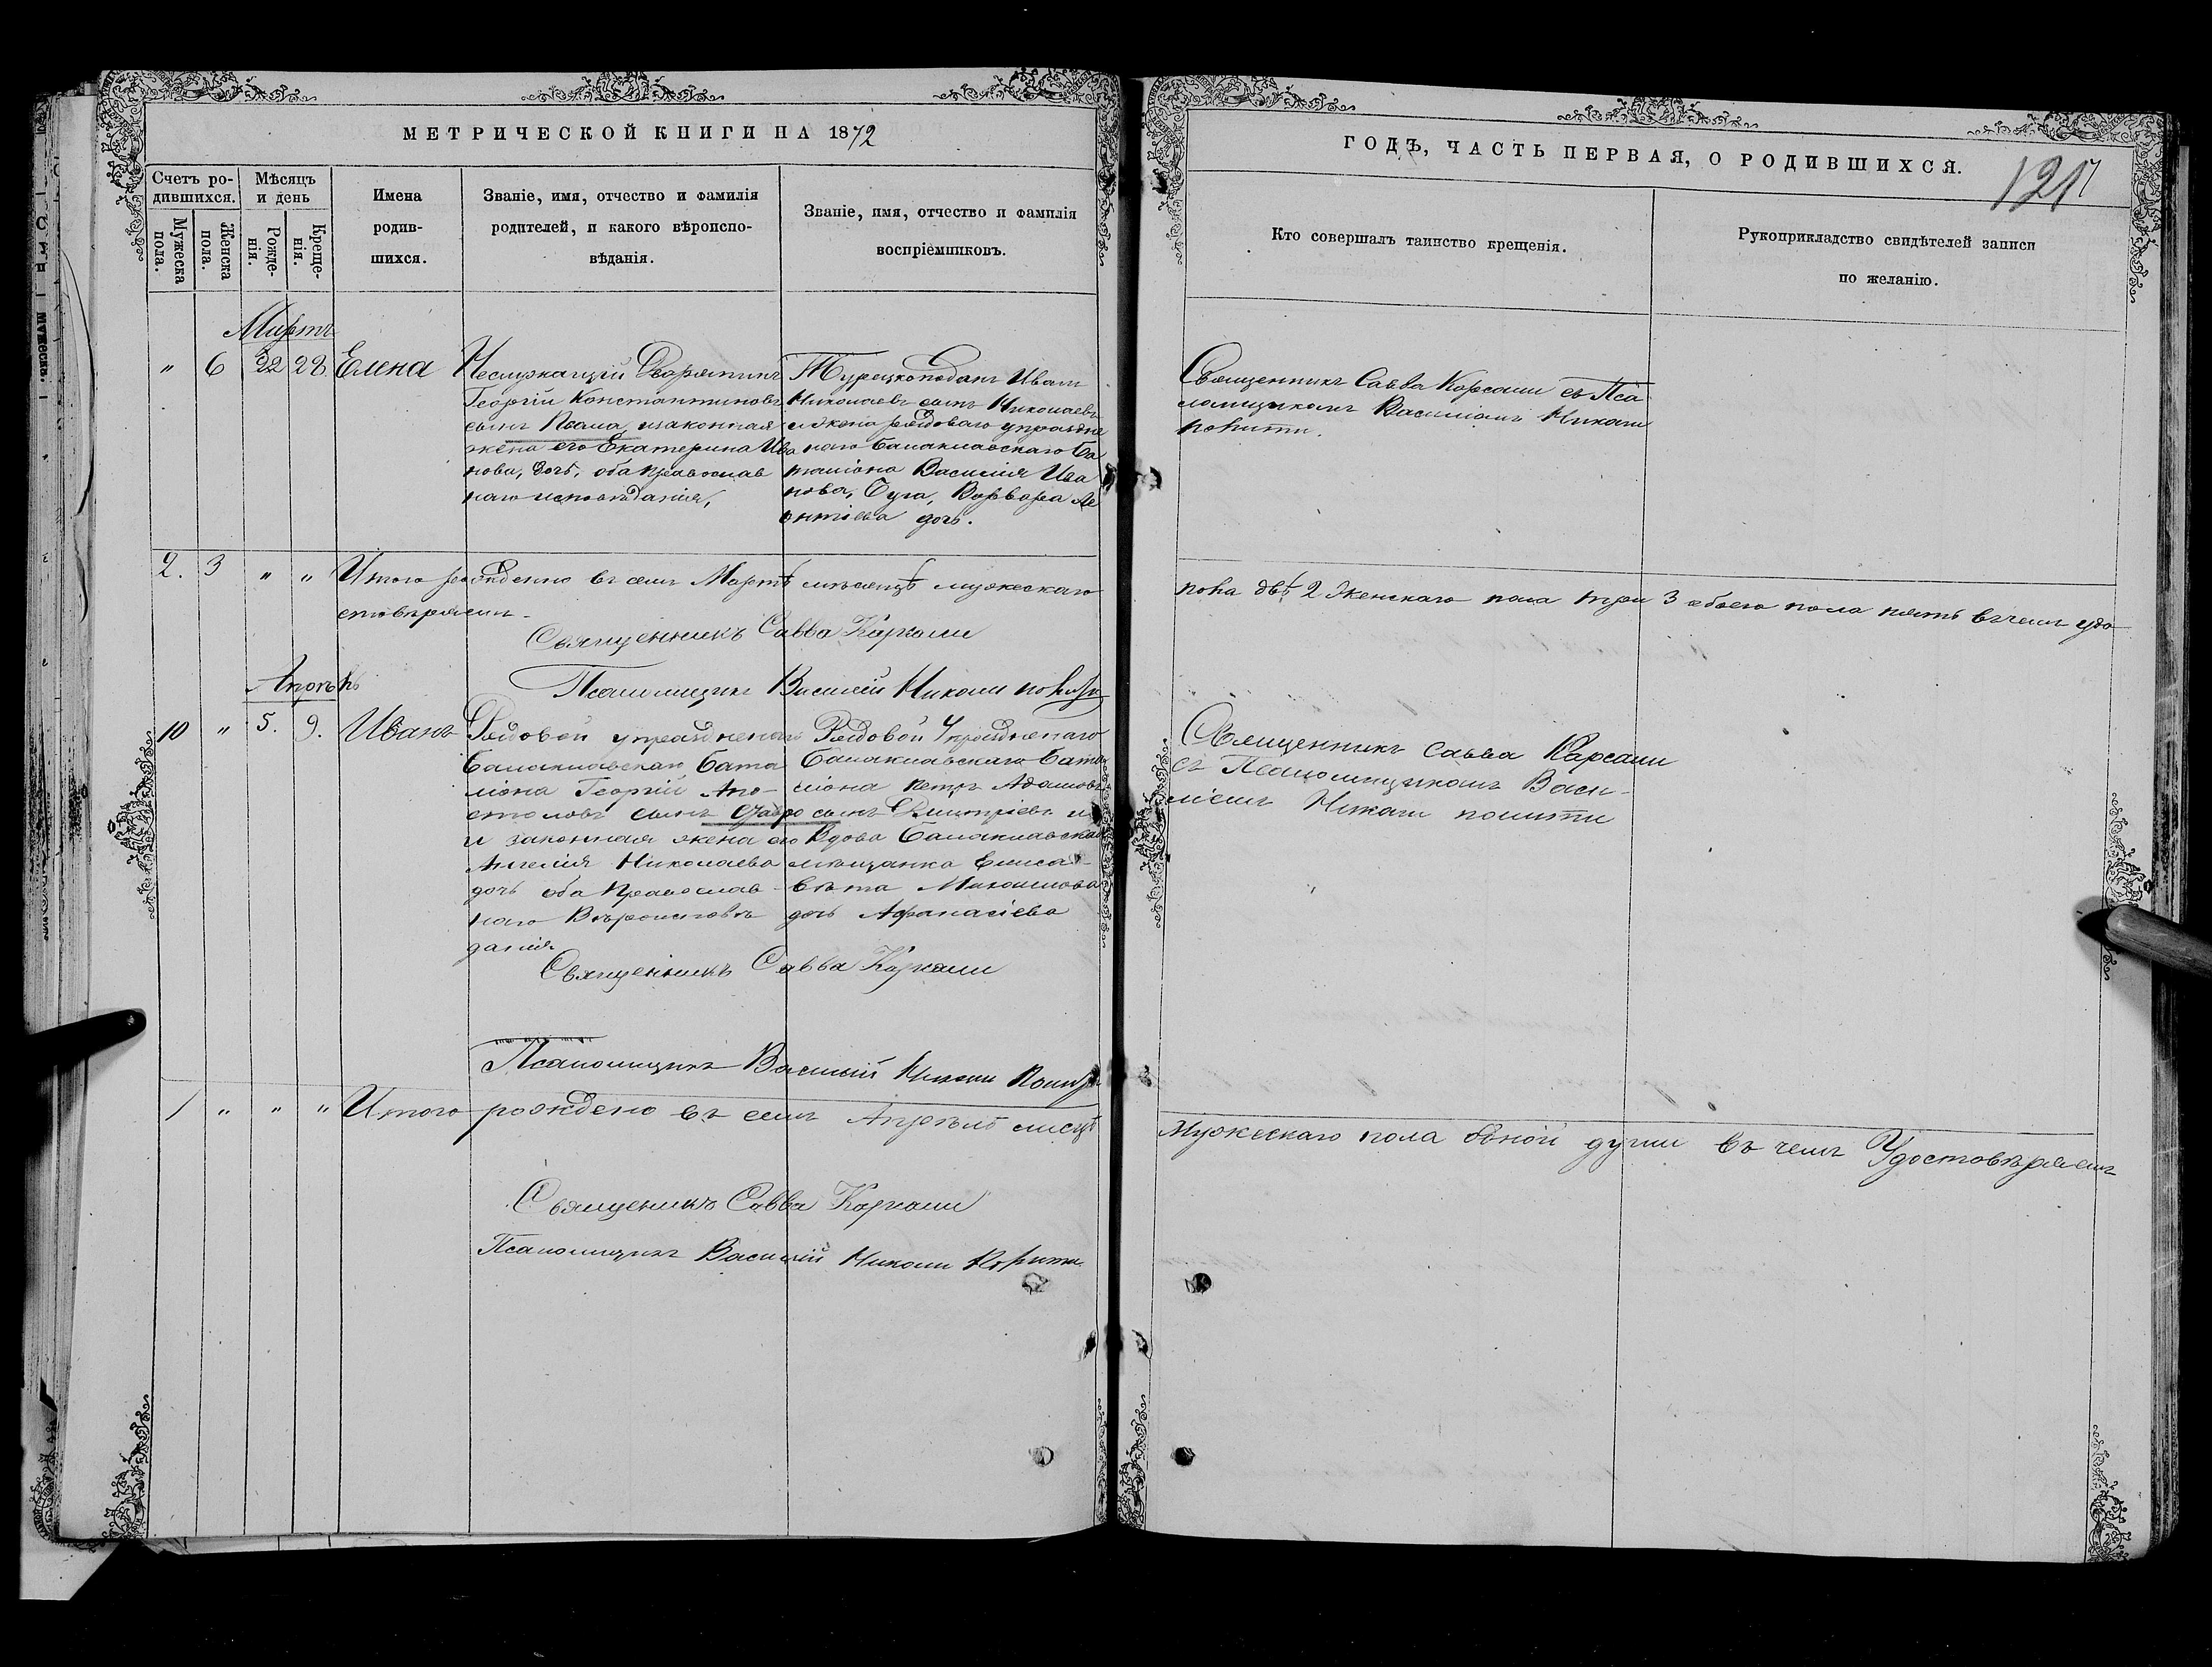 МЕТРИЧЕСКОЙ КНИГИ НА 1872
Счетъ ро-
дившихся.
Мужеска
пола.
Женска
пола.
Мѣсяцъ
и день
Рожде-
нія.
Креще-
нія.
Имена
родив-
шихся.
Званіе, имя, отчество и фамилія
родителей, и какого вѣроиспо-
вѣданія.
Званіе, имя, отчество и фамилія
воспріемниковъ.
Мартъ
" 6 22 28 Елена
Неслужащій Дворянинъ
Георгій Константиновъ
сынъ изаконная
жена его Екатерина Ива
нова, дочь, оба православ
наго исповѣданія,
Турецкоподан Иванъ
Николаевъ сынъ Николаевъ
и жена рядоваго упраздне
наго Балаклавскаго Ба
таліона Василія Ива
нова, Варвара Ле
онтіева дочь.
2. 3 " " Итого рожденно въ семъ Мартѣ мѣсяцѣ мужескаго
стовѣряемъ
Священникъ Савва
Псаломщикъ Василій Николи
Апрель
10 " 5. 9. Иванъ
Рядовой упраздненаго
Балаклавскаго Бата
ліона Георгій Апо-
столовъ сынъ
и законная жена его
Ангелія Николаева
дочь оба Православ-
наго Вѣроисповѣ
данія
Рядовой Упраздненаго
Балаклавскаго Бата
ліона Петръ Адамовъ
сынъ Дмитріевъ и
Вдова Балаклавская
мѣщанка Елиса-
вѣта Михаилова
дочь Афанасіева
Священникъ Савва
Псаломщикъ Василій Николи
1 " " " Итого рождено въ семъ Апрелѣ мисцѣ
Священикъ Савва
Псаломщикъ Василій Николи
ГОДЪ, ЧАСТЬ ПЕРВАЯ, О РОДИВШИХСЯ.
Кто совершалъ таинство крещенія.
Рукоприкладство свидѣтелей записи
по желанію.
Священникъ Савва съ Пса
ломщикомъ Василіомъ Николи
пола двѣ 2 Женскаго пола три 3 обоего пола пять вчемъ удо
Священникъ Савва
съ Псаломщикомъ Васи-
ліемъ Николи
Мужескаго пола одной души въ чемъ Удостовѣряемъ